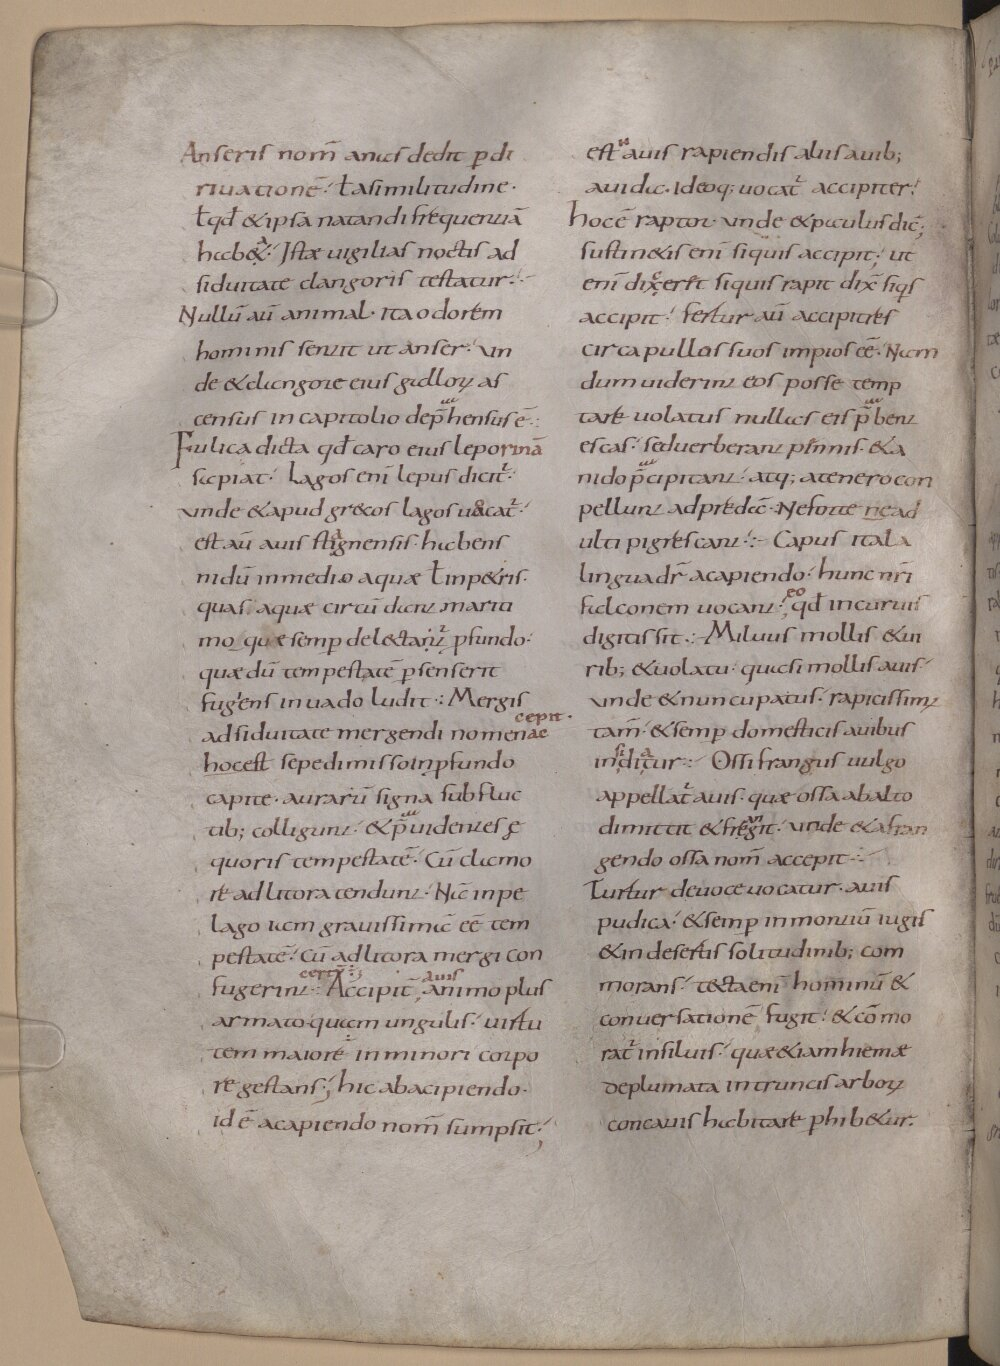 Anseris nom̄ anas dedit p̱ di
rivationē· ƚ a similitudine·
ƚ qđ & ipsa natandi frequentiā
hab&· Istæ vigilias noctis ad
siduitate clangoris testatur·
Nullū aū animal· ita odorem
hominis sentit ut anser· un
de & clangore eius galloꝝ as
census in capitolio dep̄hensus ē·
Fulica dicta qđ caro eius leporinā
sapiat· Lagos enī lepus dicit᷑·
unde & apud grecos lagos vocat᷑·
est aū avis stagnensis· habens
nidū in medio aquæ ƚ in p&ris·
quas aquæ circū dant mariti
mo quæ semp̱ del&tat᷑ p̱fundo·
quæ dū tempestatē p̱senserit
fugiens in vado ludit·: Mergis
cepit·
adsiduitate mergendi nomen ac
hoc est sepe dimisso in p̱fundo
capite· aurarū signa sub fluc
tib; colligunt· & p̄videntes ę
quoris tempestatē· Cū clamo
re ad litora tendunt· Nā in pe
lago iam gravissimā eē tem
pestatē· Cū ad litora mergi con
certū avis
fugerint·: Accipit᷑ animo plus
armato quam ungulis· virtu
tem maiorē in minori corpo
re gestans·; hic ab acipiendo·
id ē a capiendo nom̄ sumpsit·;
est avis rapiendis aliis avib;
avida· Ideoq; vocat᷑ accipiter·
hoc ē raptor· unde & paulus dic̄·;
sustin&is enī siquis accipit· ut
enī dixerit siquis rapit dix̄ siqs
accipit· fertur aū accipitres
circa pullos suos impios eē· Nam
dum viderint eos posse temp
tare volatus nullas eis p̄bent
escas· sed verberant pinnis· & a
nido p̄cipitant· atq; a tenero con
pellunt ad predā· Ne forte ne ad
ulti pigrescant·:- Capus itala
lingua dr̄ a capiendo· hunc nr̄i
eo
falconem vocant·, qđ incurvis
digitis sit·:- Milvus mollis & vi
rib; & volatu· quasi mollis avis·
unde & nuncupatus· rapicissimꝰ
tam̄· & semp̱ domesticis avibus
insidiatur·: Ossifrangus vulgo
appellat᷑ avis· quæ ossa ab alto
dimittit & frangit· unde & a fran
gendo ossa nom̄ accepit·:-
Turtur de voce vocatur· avis
pudica· & semp̱ in montiū iugis
& in desertis solitudinib; com
morans· tecta enī hominū &
conversationē fugit· & cōmo
rat᷑ in silvis· quæ &iam hiemæ
deplumata in truncis arboꝝ
concavis habitare phib&ur.